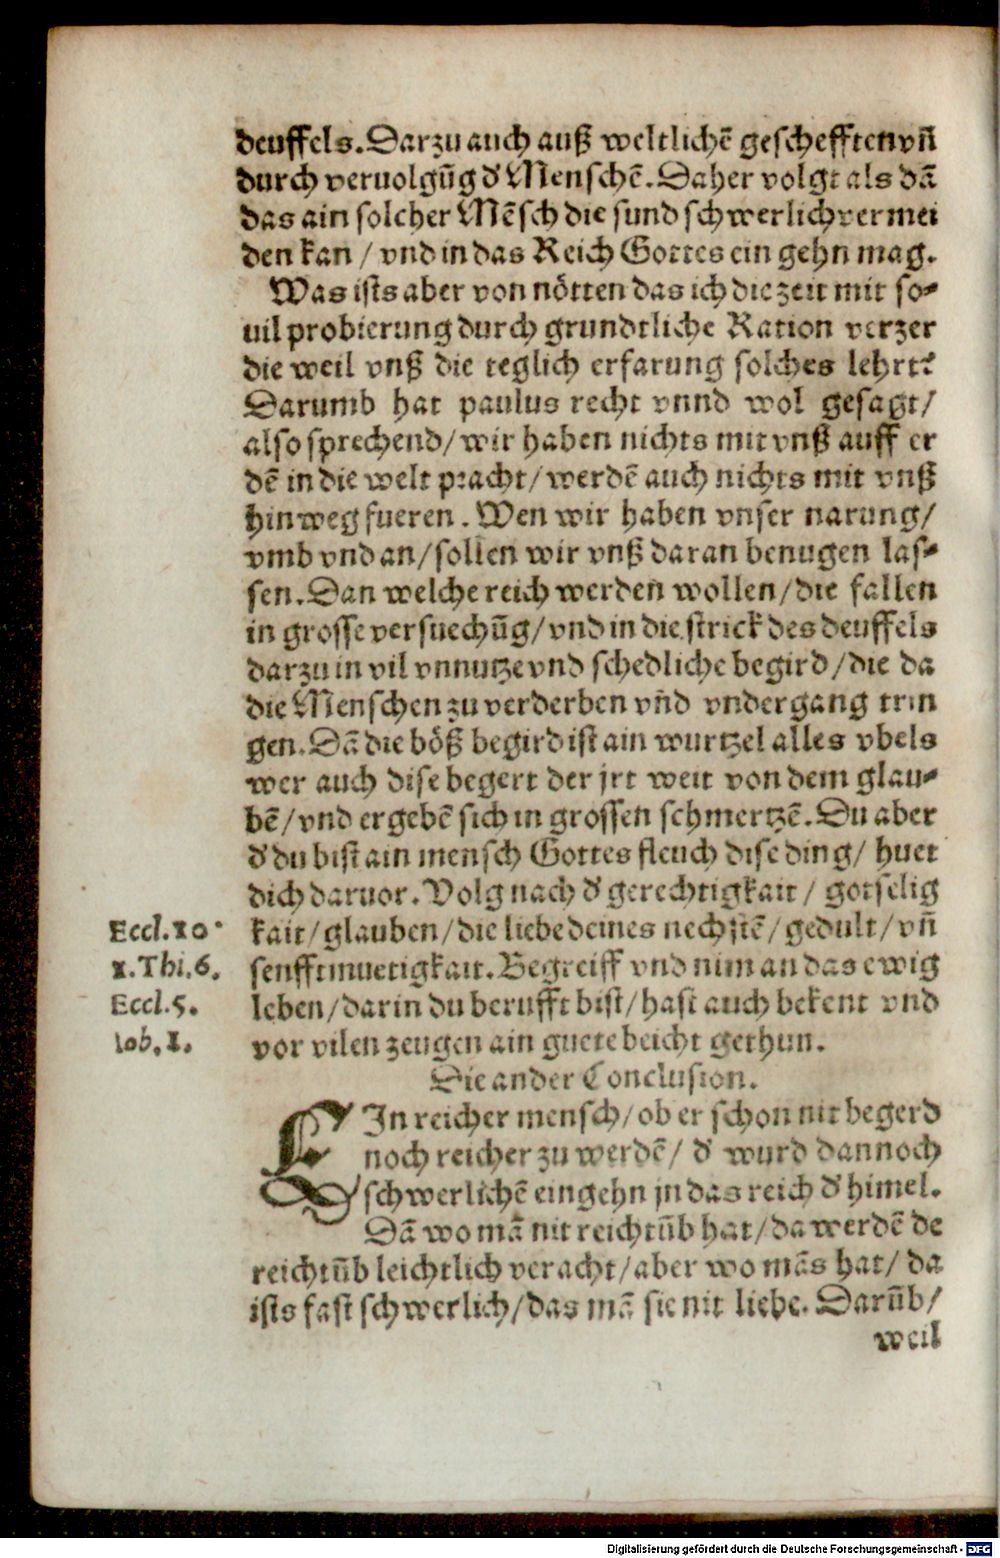 deuffels. Darzu auch auß weltlichē geschefften vñ
durch veruolgūg d' Menschē. Daher volgt als dā
das ain solcher Mēsch die sund schwerlich vermei
den kan / vnd in das Reich Gottes ein gehn mag.
Was ists aber von nötten das ich die zeit mit so⸗
uil probierung durch grundtliche Ration verzer
die weil vnß die teglich erfarung solches lehrt?
Darumb hat paulus recht vnnd wol gesagt/
also sprechend/ wir haben nichts mit vnß auff er
dē in die welt pracht/ werdē auch nichts mit vnß
hinweg fueren. Wen wir haben vnser narung/
vmb vnd an/ sollen wir vnß daran benugen las⸗
sen. Dan welche reich werden wollen/ die fallen
in grosse versuechūg/ vnd in die strick des deuffels
darzu in vil vnnutze vnd schedliche begird/ die da
die Menschen zu verderben vñd vndergang trin
gen. Dā die böß begird ist ain wurtzel alles vbels
wer auch dise begert der jrt weit von dem glau⸗
bē/ vnd ergebē sich in grossen schmertzē. Du aber
d' du bist ain mensch Gottes fleuch dise ding/ huet
dich daruor. Volg nach d' gerechtigkait/ gotselig
kait/ glauben/ die liebe deines nechstē/ gedult/ vñ
senfftmuetigkait. Begreiff vnd nim an das ewig
leben/ darin du berufft bist/ hast auch bekent vnd
vor vilen zeugen ain guete beicht gethun.
Eccl. 10.
1. Thi. 6.
Eccl. 5.
Iob. 1.
Die ander Conclusion.
EIn reicher mensch/ ob er schon nit begerd
noch reicher zu werdē/ d' wurd dannoch
schwerlichē eingehn jn das reich d' himel.
Dā wo mā nit reichtūb hat/ da werdē de
reichtūb leichtlich veracht/ aber wo māns hat/ da
ists fast schwerlich/ das mā sie nit liebe. Darūb/
weil
Digitalisierung gefördert durch die Deutsche Forschungsgemeinschaft - DFG